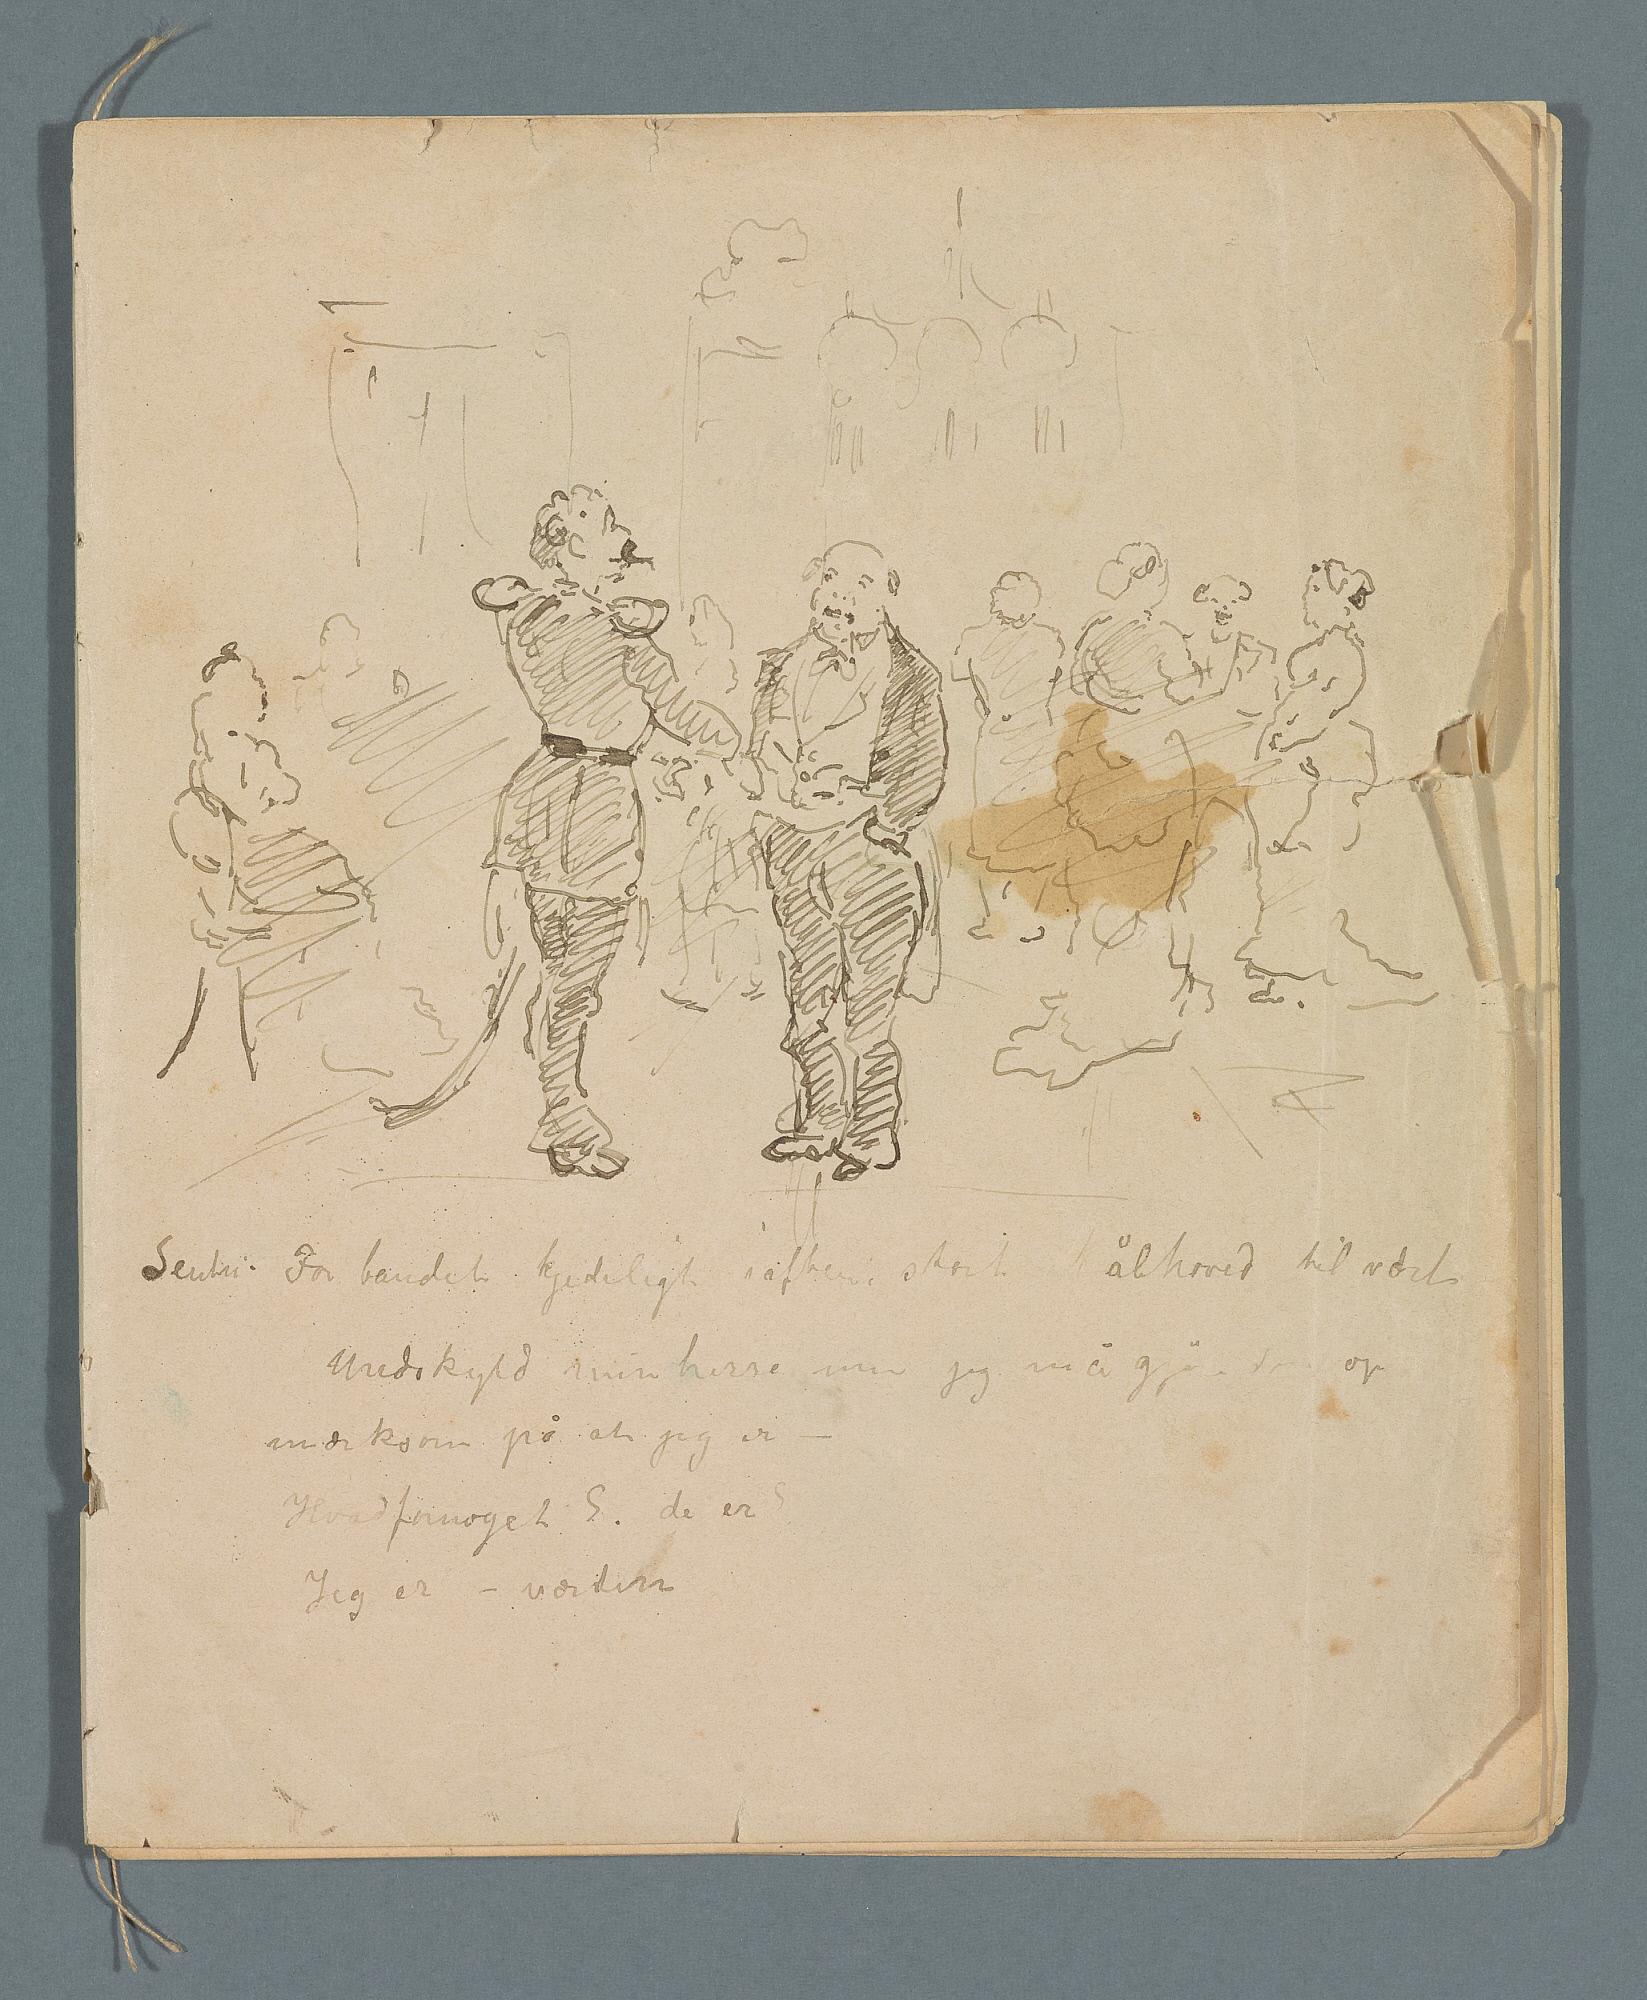 For bandet kjedeligt iaften, stort kålhoved til vært
Undskyld min herre men jeg må gjø op
mærksom på at jeg er –
Hvadfornoget ? de er ?
Jeg er – værten